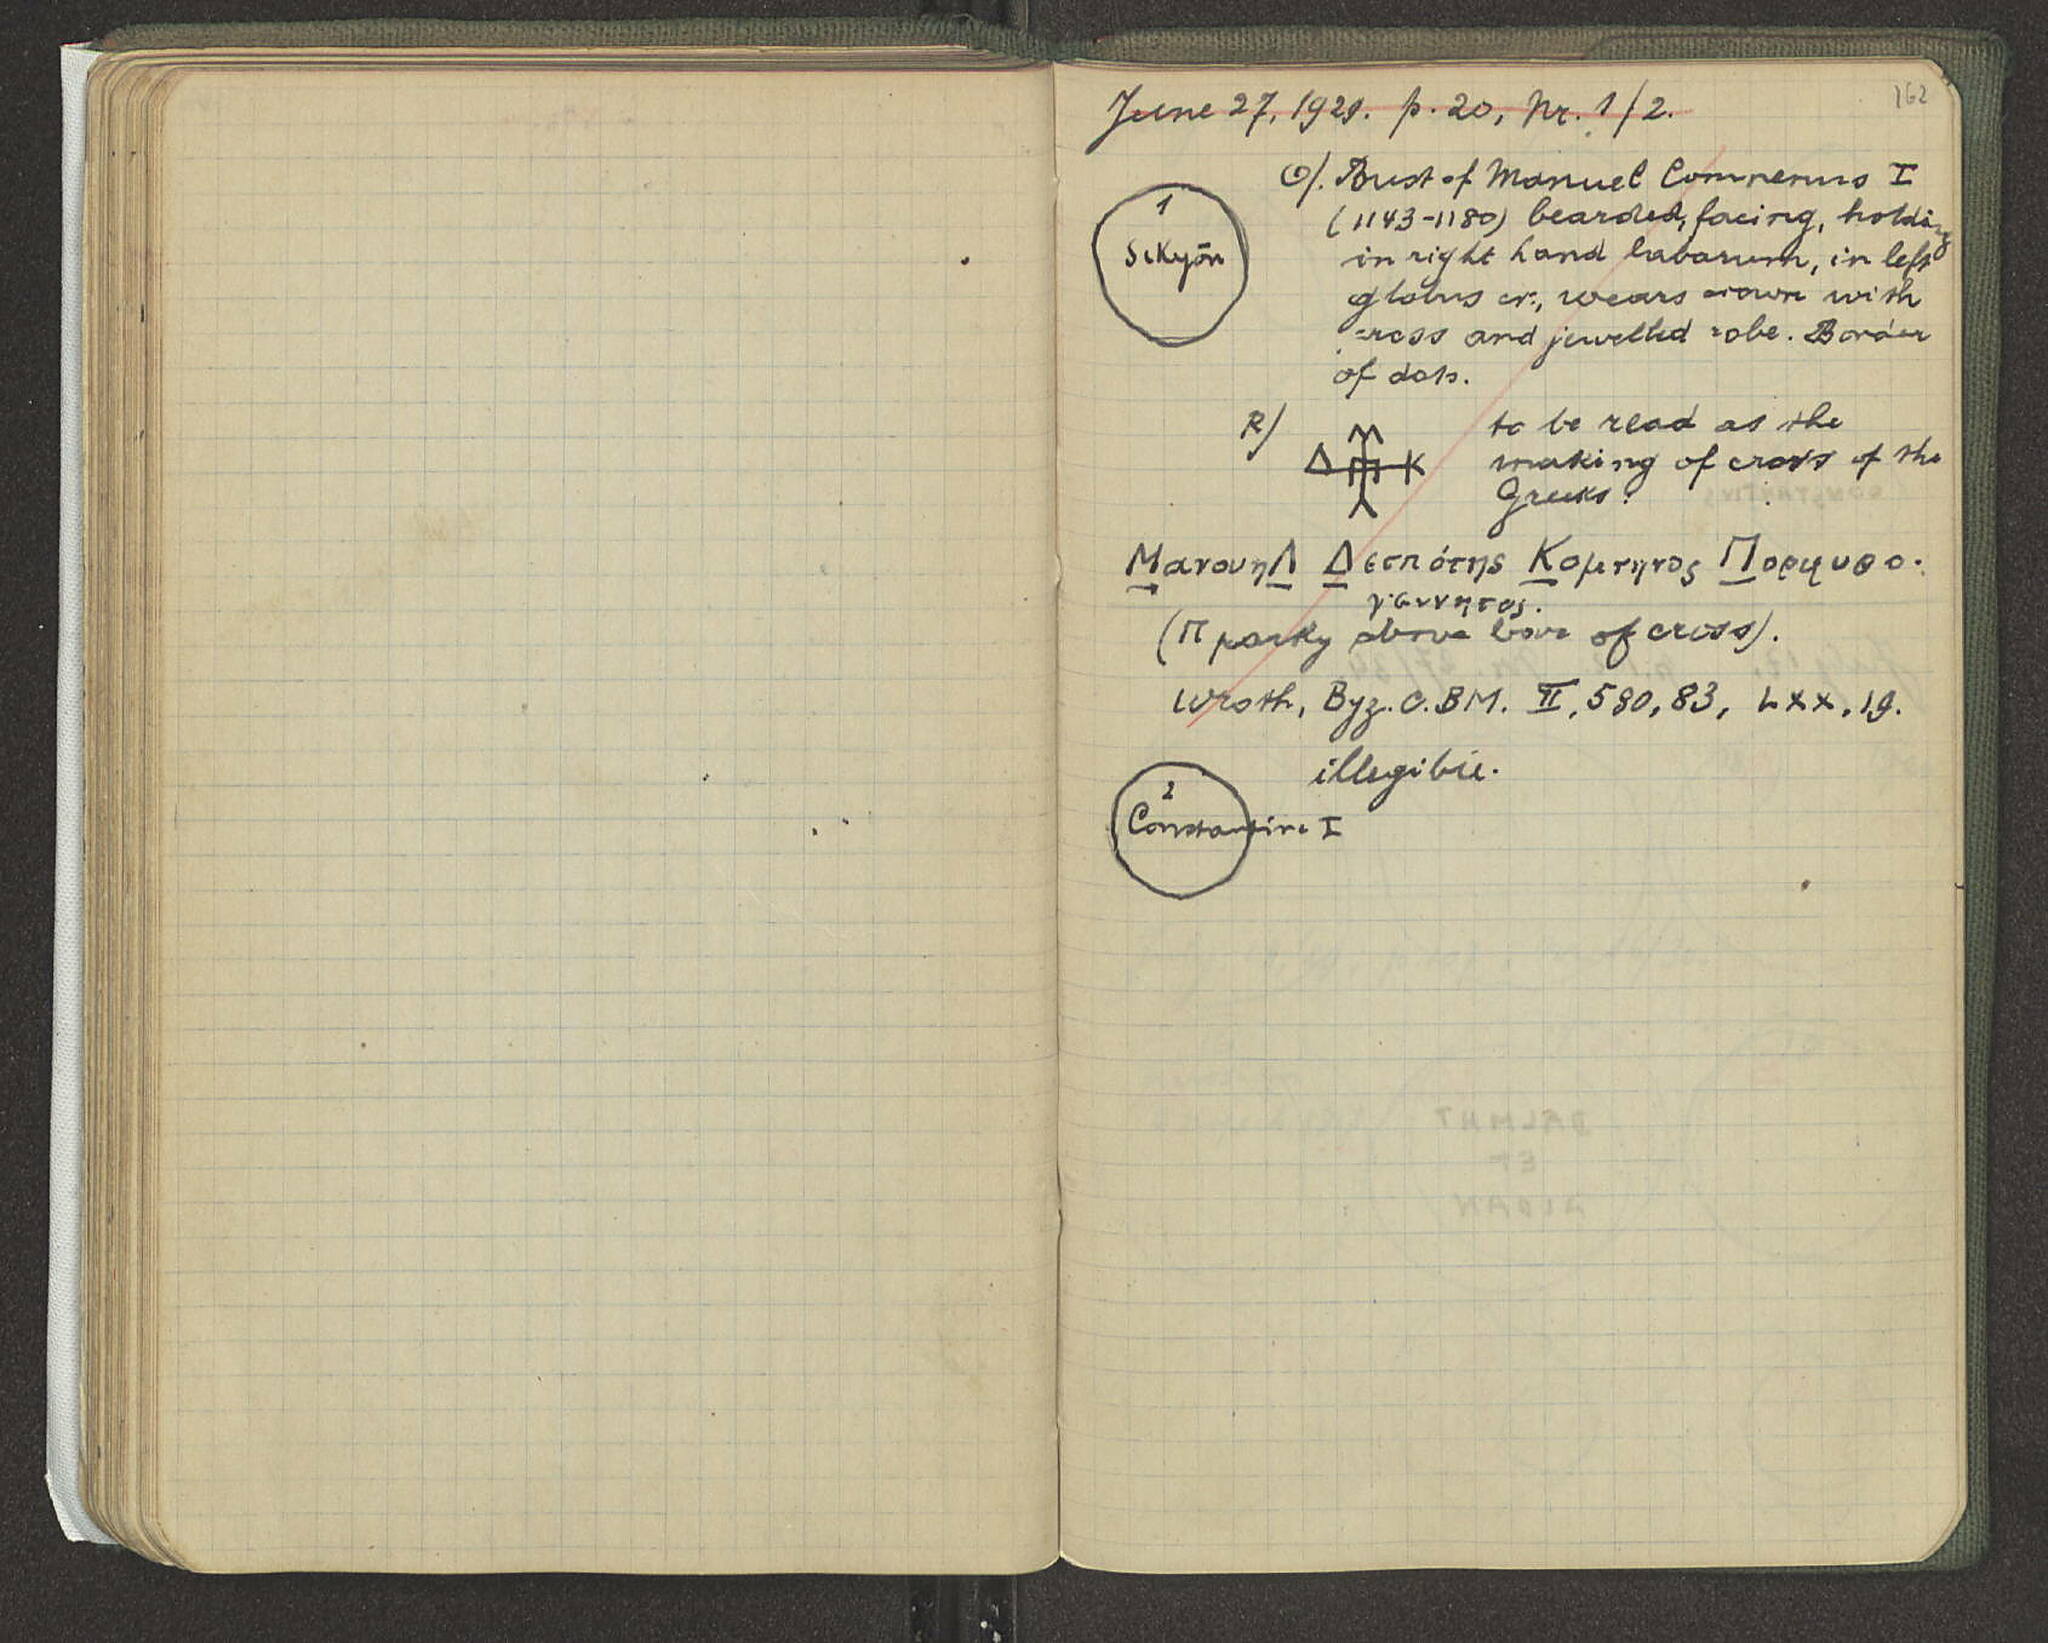 162
June 27, 1929. p. 20, Nr. 1/2.
1
Sikyōn
O/. Bust of Manuel Comnenus I
(1143-1180) bearded, facing, holding
in right hand labarum, in left
globus cr., wears crown with
cross and jewelled robe. Border
of dots.
R/
M
Δ Π K
Λ
to be read as the
making of cross of the
Greeks:
ΜανουηΛ Δεσπότης Κομνηνος Πορφυρο-
γεννητος.
(Π partly above bar of cross).
Wroth, Byz. C. BM. II, 580, 83, LXX, 19.
illegible.
2
Constantine I
DALMHT
ET